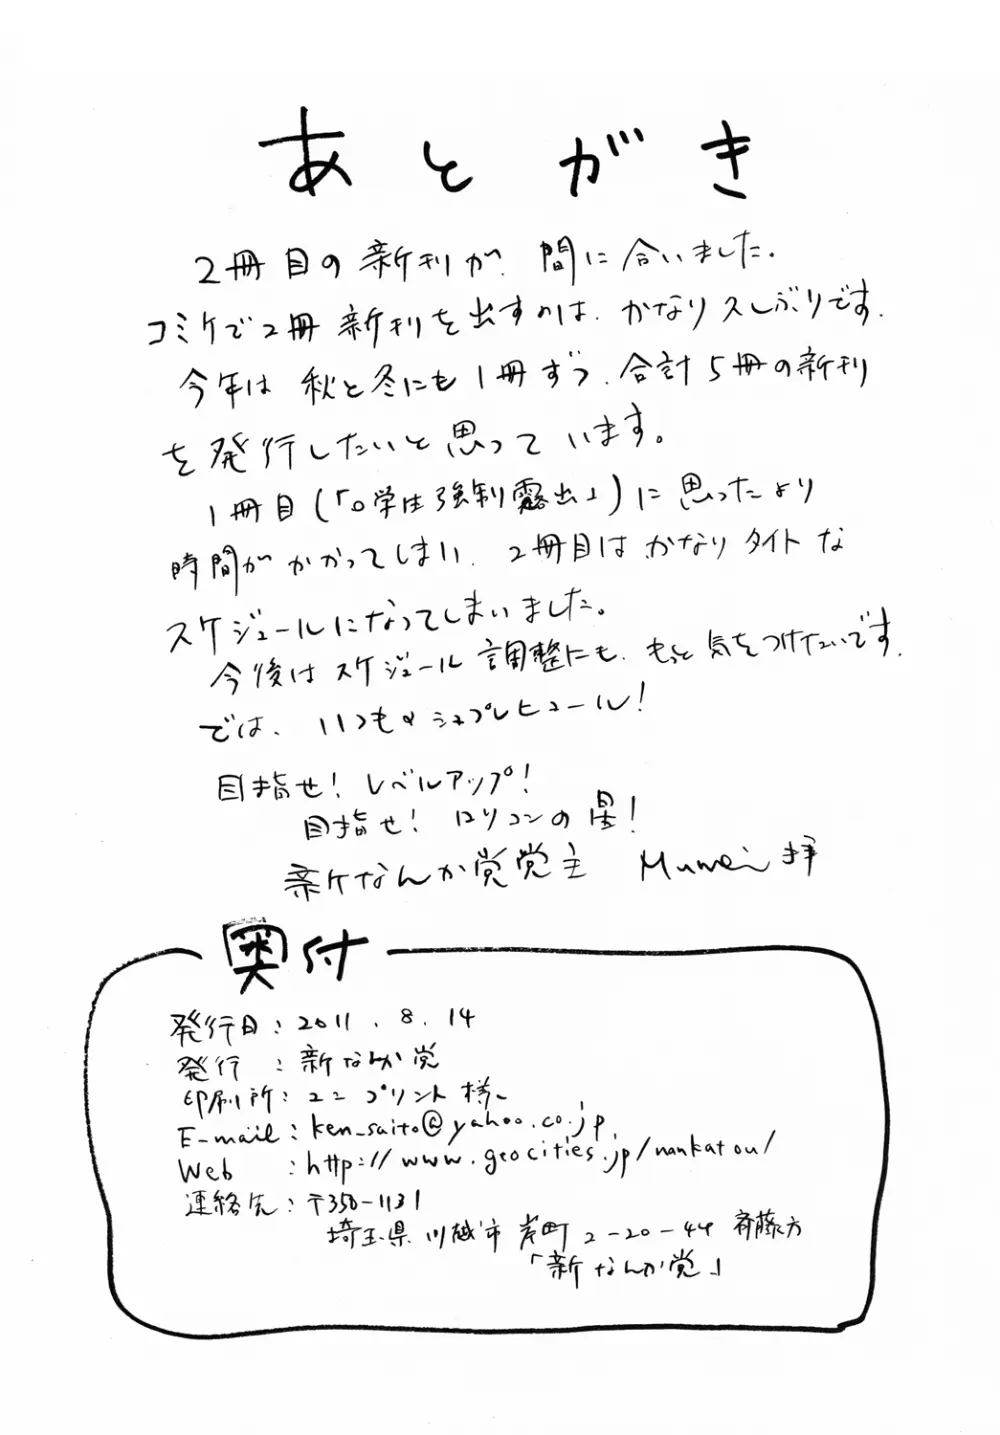 あとがき
2冊目の新刊が、間に合いました。
コミケで2冊新刊を出すのは、かなり久しぶりです。
今年は秋と冬にも1冊ずつ、合計5冊の新刊
を発行したいと思っています。
1冊目(「○学生強制露出」)に思ったより
時間がかかってしまい、2冊目はかなりタイトな
スケジュールになってしまいました。
今後はスケジュール調整にも、もっと気をつけたいです。
では、いつものシュプレヒコール!
目指せ!レベルアップ!
目指せ!ロリコンの星!
新なんか党党主 Mumei 拝
奥付
発行日:2011.8.14
発行:新なんか党
印刷所:コニープリント様
E-mail:ken_saito@yahoo.co.jp
Web:http://www.geocities.jp/nankatou/
連絡先:〒350-1131
埼玉県川越市岸町2-20-44 斉藤方
「新なんか党」